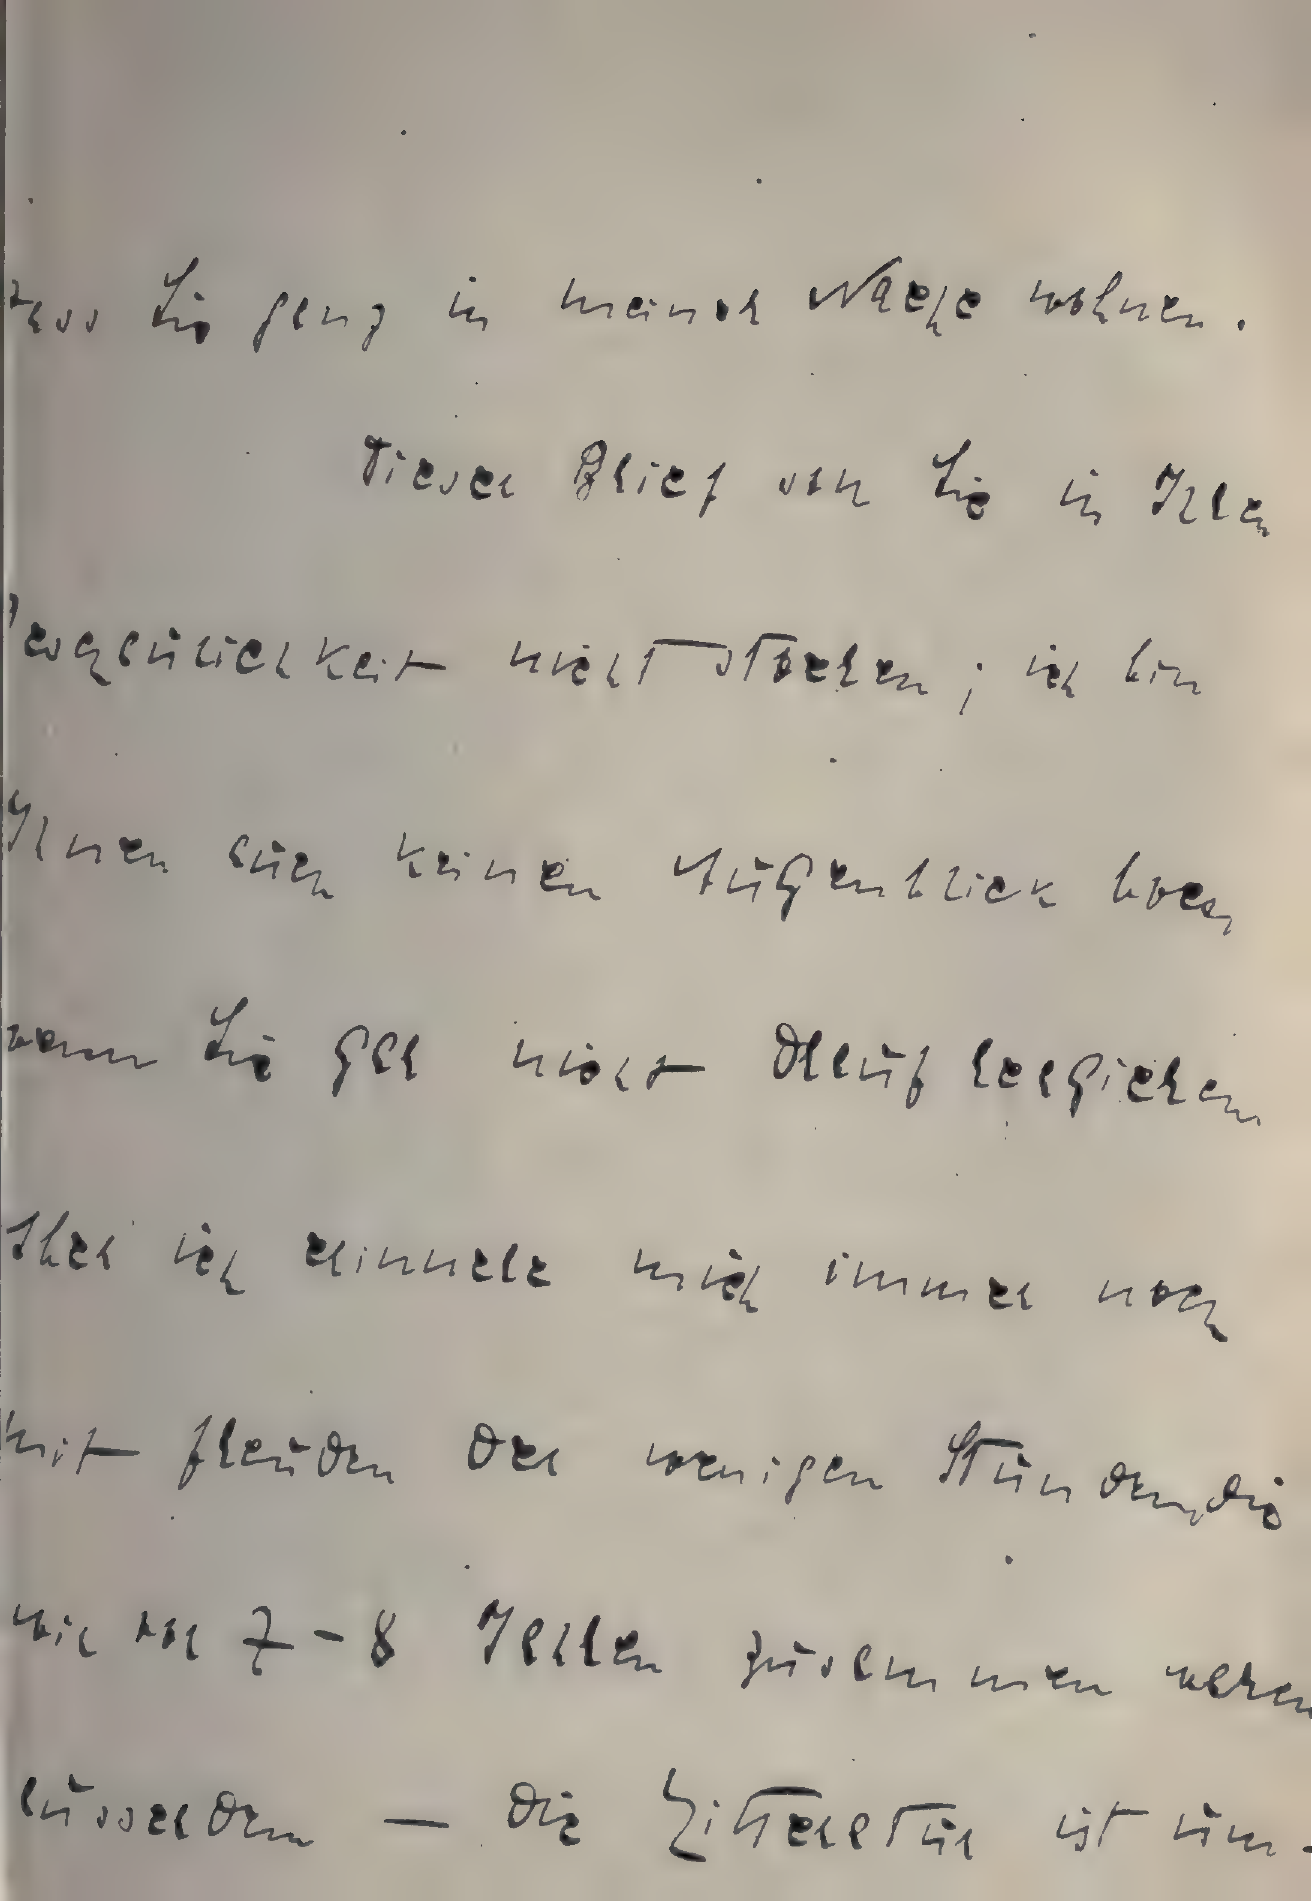 dass Sie ganz in meiner Naehe wohnen.
Dieser Brief soll Sie in Ihrer
Beschaulichkeit nicht stoeren; ich bin
Ihnen auch keinen Augenblick boes,
wenn Sie gar nicht drauf reagieren.
Aber ich erinnere mich immer noch
mit freuden der wenigen Stunden, die
wir vor 7-8 Jahren zusammen waren
ausserdem — die Litteratur ist um-